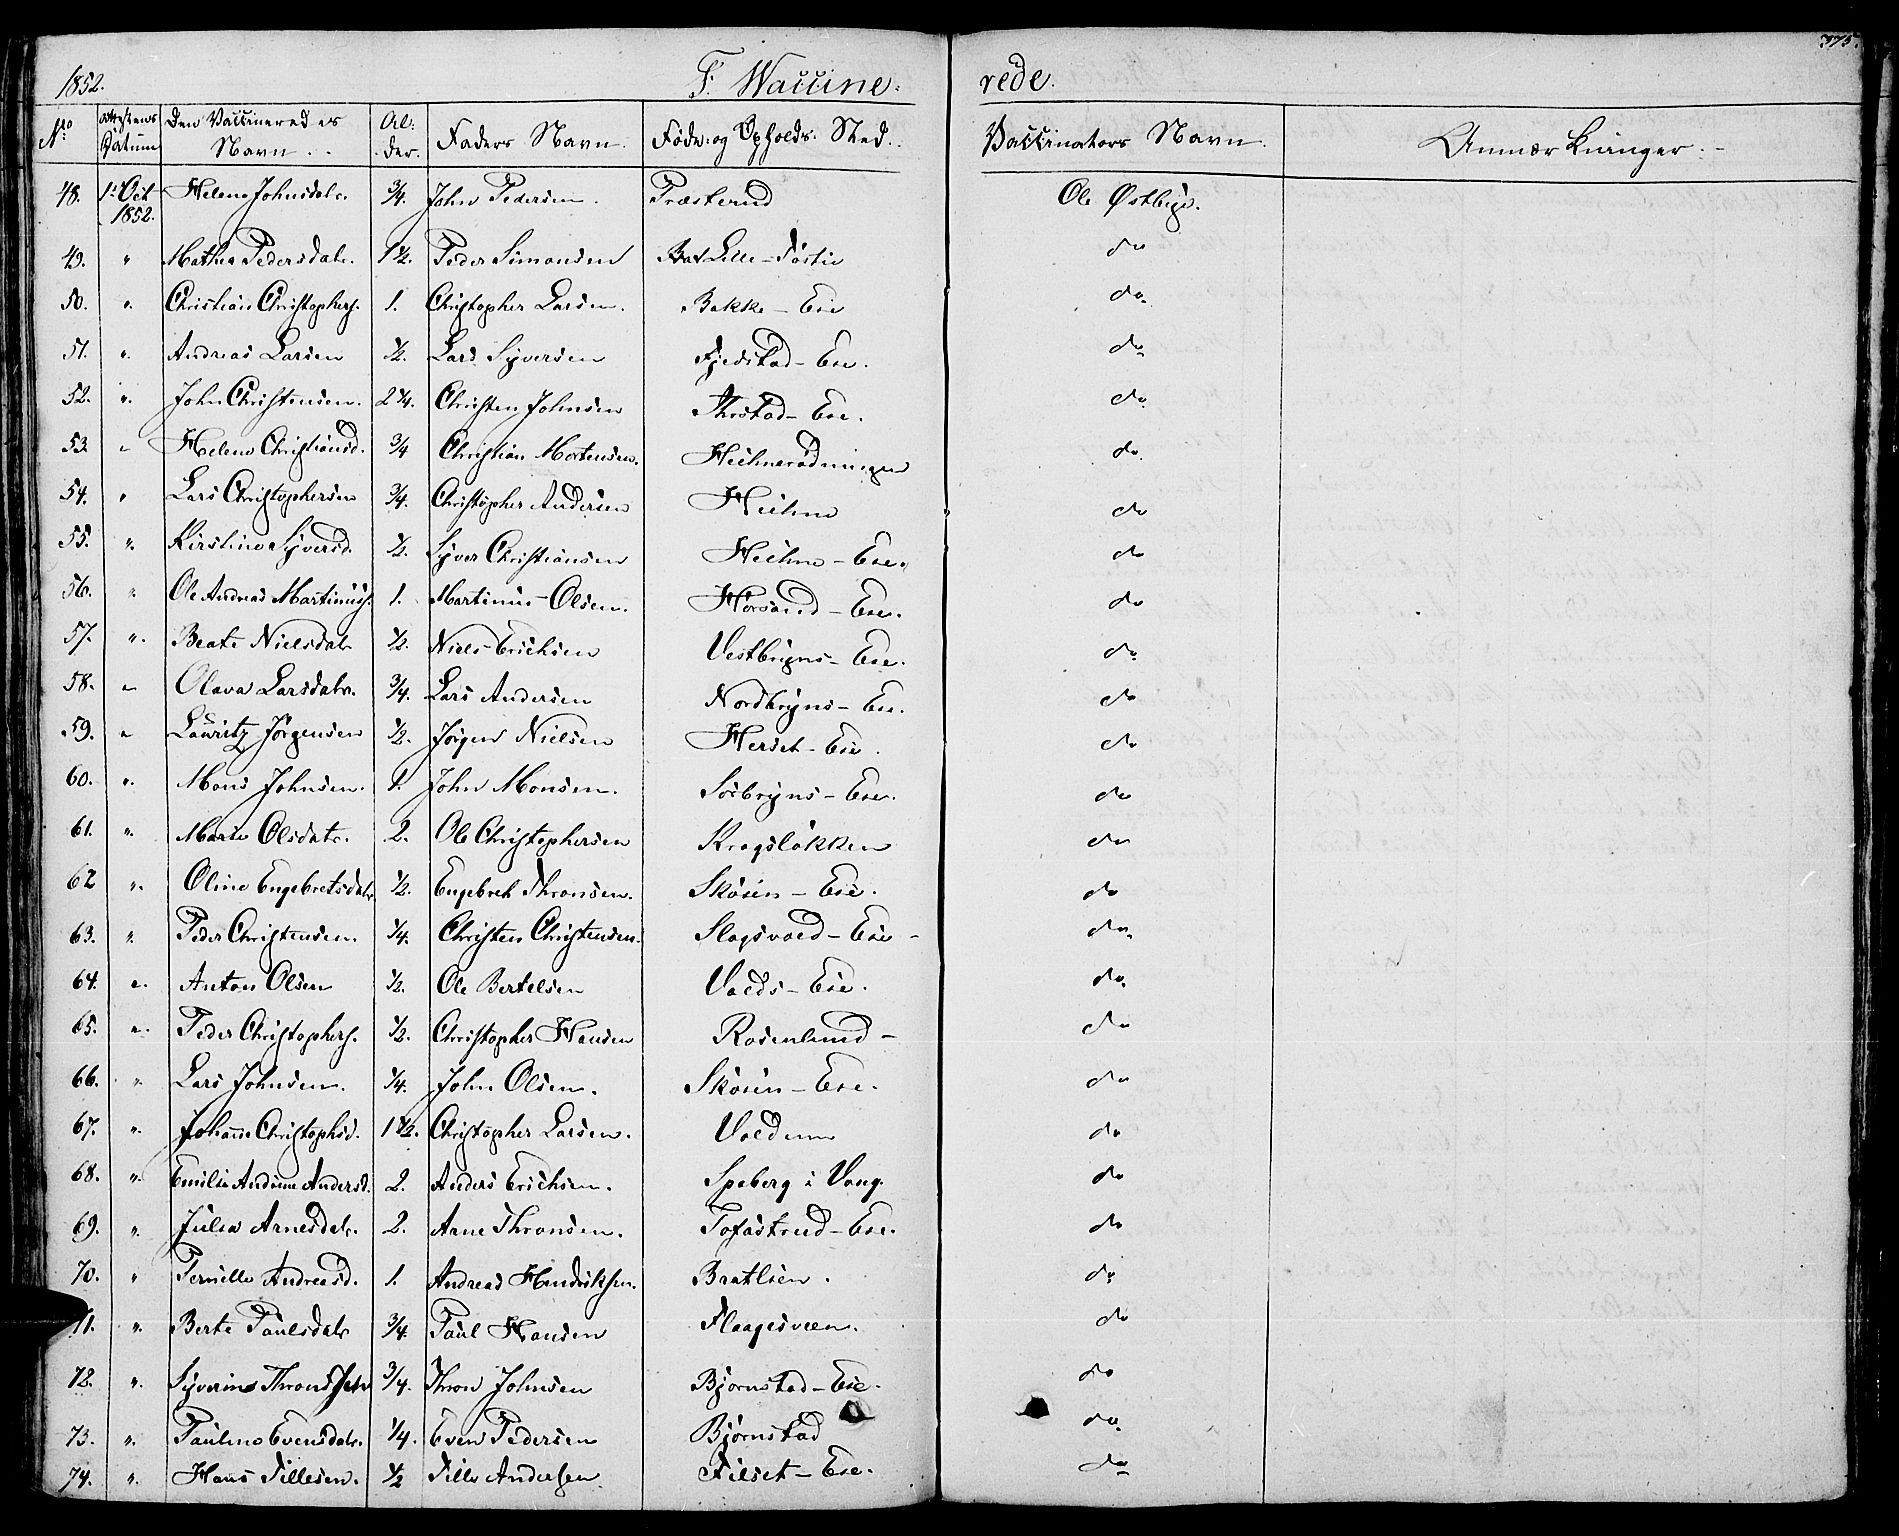 375.
1852. F. Waccine- rede.
No. Attestens Datum Den Vaccineredes Navn. Al-der. Faders Navn. Føde- og Opholds-Sted. Vaccinators Navn. Anmærkninger.
48. 1ste Oct 1852. Helene Johnsdatr. 3/4. John Pedersen. Præsterud Ole Østbye.
49. " Mathea Pedersdatr. 1 1/2. Peder Simonsen Lille- do
50. " Christian Christophers. 1. Christopher Larsen. Bakke-Eie do.
51. " Andreas Larsen 1/2. Lars Syversen Fjedstad-Eie. do.
52. " John Christensen. 2 1/4. Christen Johnsen Eie. do.
53. " Helene Christiansd. 3/4 Christian Mortensen. do.
54. " Lars Christophersen 3/4. Christopher Andersen do
55. " Kirstine Syversd. 1/2. Syver Christiansen Eie. do
56. " Ole Andreas Martinus. 1. Martinus Olsen. Eie. do
57. " Beate Nielsdatr 1/2. Niels Erichsen Vestbryns-Eie. do.
58. " Olava Larsdatr. 3/4. Lars Andersen Nordbryns-Eie. do
59. " Lauritz Jørgensen 1/2. Jørgen Nielsen Herset-Eie. do
60. " Mons Johnsen. 1. John Monsen. Sörbryns-Eie. do
61. " Marie Olsdatr. 2. Ole Christophersen Kragsløkken do
62 " Oline Engebretsdatr 1/2. Engebret Thronsen. Skøien-Eie. do
63. " Peder Christensen. 1/4. Christen Christensen. Slagsvold-Eie- do.
64. " Anton Olsen 1/2. Ole Bertelsen Volds-Eie. do.
65. " Peder Christophers. 1/2. Christopher Hansen Rosenlund- do
66. " Lars Johnsen. 1/4. John Olsen. Skøien-Eie. do
67. " Johanne Christophsd. 1 1/2. Christopher Larsen. Voldum do
68. " Emilie Andrine Andersd. 2. Anders Erichsen. Spaberg i Vang. do
69. " Julia Arnesdatr. 2. Arne Thronsen. Tofastrud-Eie. do
70. " Pernille Andreasd. 1. Andreas Hendriksen. Bratlien. do
71. " Berte Paulsdatr 3/4. Paul Hansen Flaagesveen. do
72. " Syverine Throndsdatr 3/4. Thron Johnsen Bjørnstad-Eie. do
73. " Pauline Evensdatr. 1/4. Even Pedersen Bjørnstad do.
74. " Hans Tillesen. 1/2 Tille Andersen Filset-Eie. do